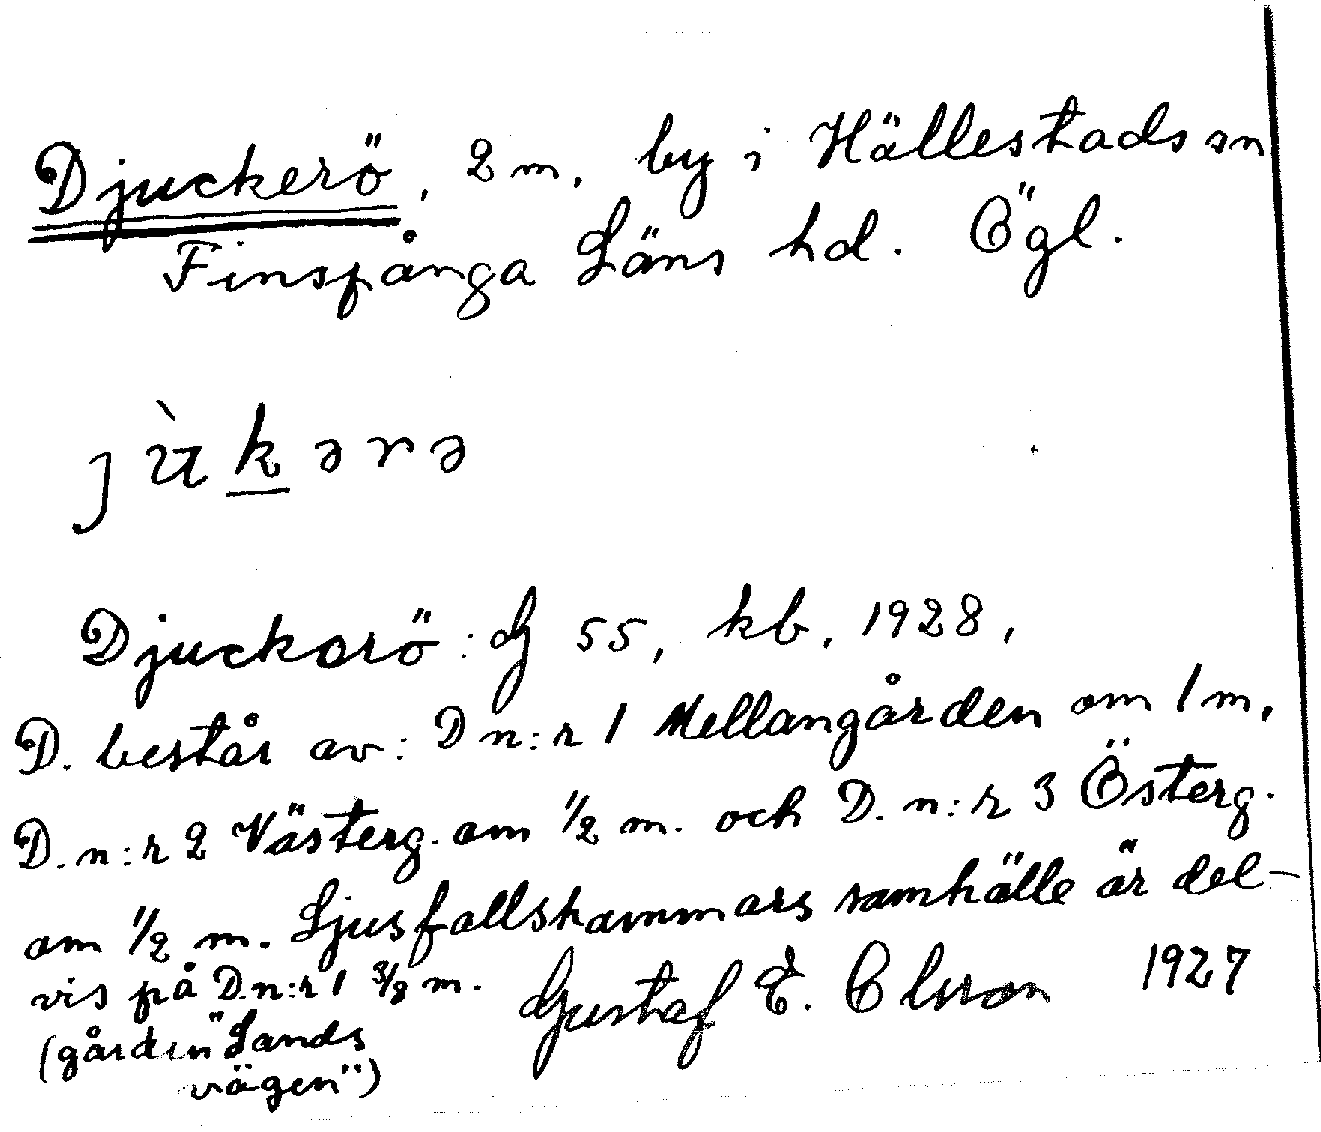 Djuckerö, 2 m. by i Hällestads sn
Finspånga Läns hd. Ögl.
jùkərə
Djuckorö: G 55, kb. 1928,
D. består av: D n:r 1 Mellangården om 1 m.
D. n:r 2 Västerg. om 1/2 m. och D. n:r 3 Österg.
om 1/2 m. Ljusfallshammars samhälle är del-
vis på D. n:r 1 3/8 m.
(gården "Lands
vägen")
Gustaf E. Olsson 1927